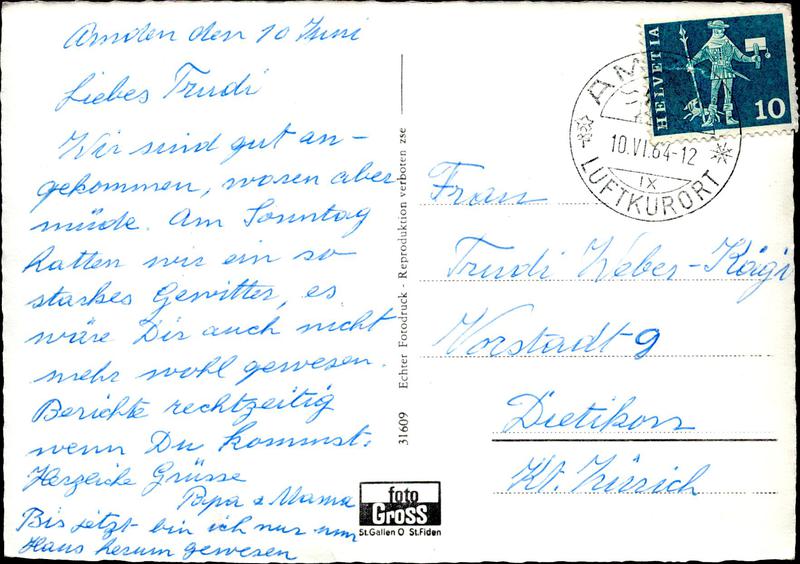 Amden den 10 Juni
Liebes Trudi
Wir sind gut an-
gekommen, waren aber
müde. Am Sonntag
hatten wir ein so
starkes Gewitter, es
wäre Dir auch nicht
mehr wohl gewesen.
Berichte rechtzeitig
wenn Du kommst.
Herzliche Grüsse
Papa & Mama
Bis jetzt bin ich nur um
Haus herum gewesen
31609 Echter Fotodruck - Reproduktion verboten zse
foto
GROSS
St.Gallen O St.Fiden
HELVETIA
10
AM
10.VI.64-12
IX
LUFTKURORT
Frau
Trudi Weber-Kägi
Vorstadt 9
Dietikon
Kt. Zürich